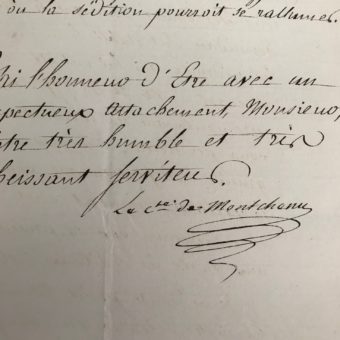 où la sédition pourroit se rallumer.
hi l'honneur d'Etre avec un
spectueux attachement, Monsieur,
otre très humble et très
beissant serviteur.
Le Cte. de Montchenu